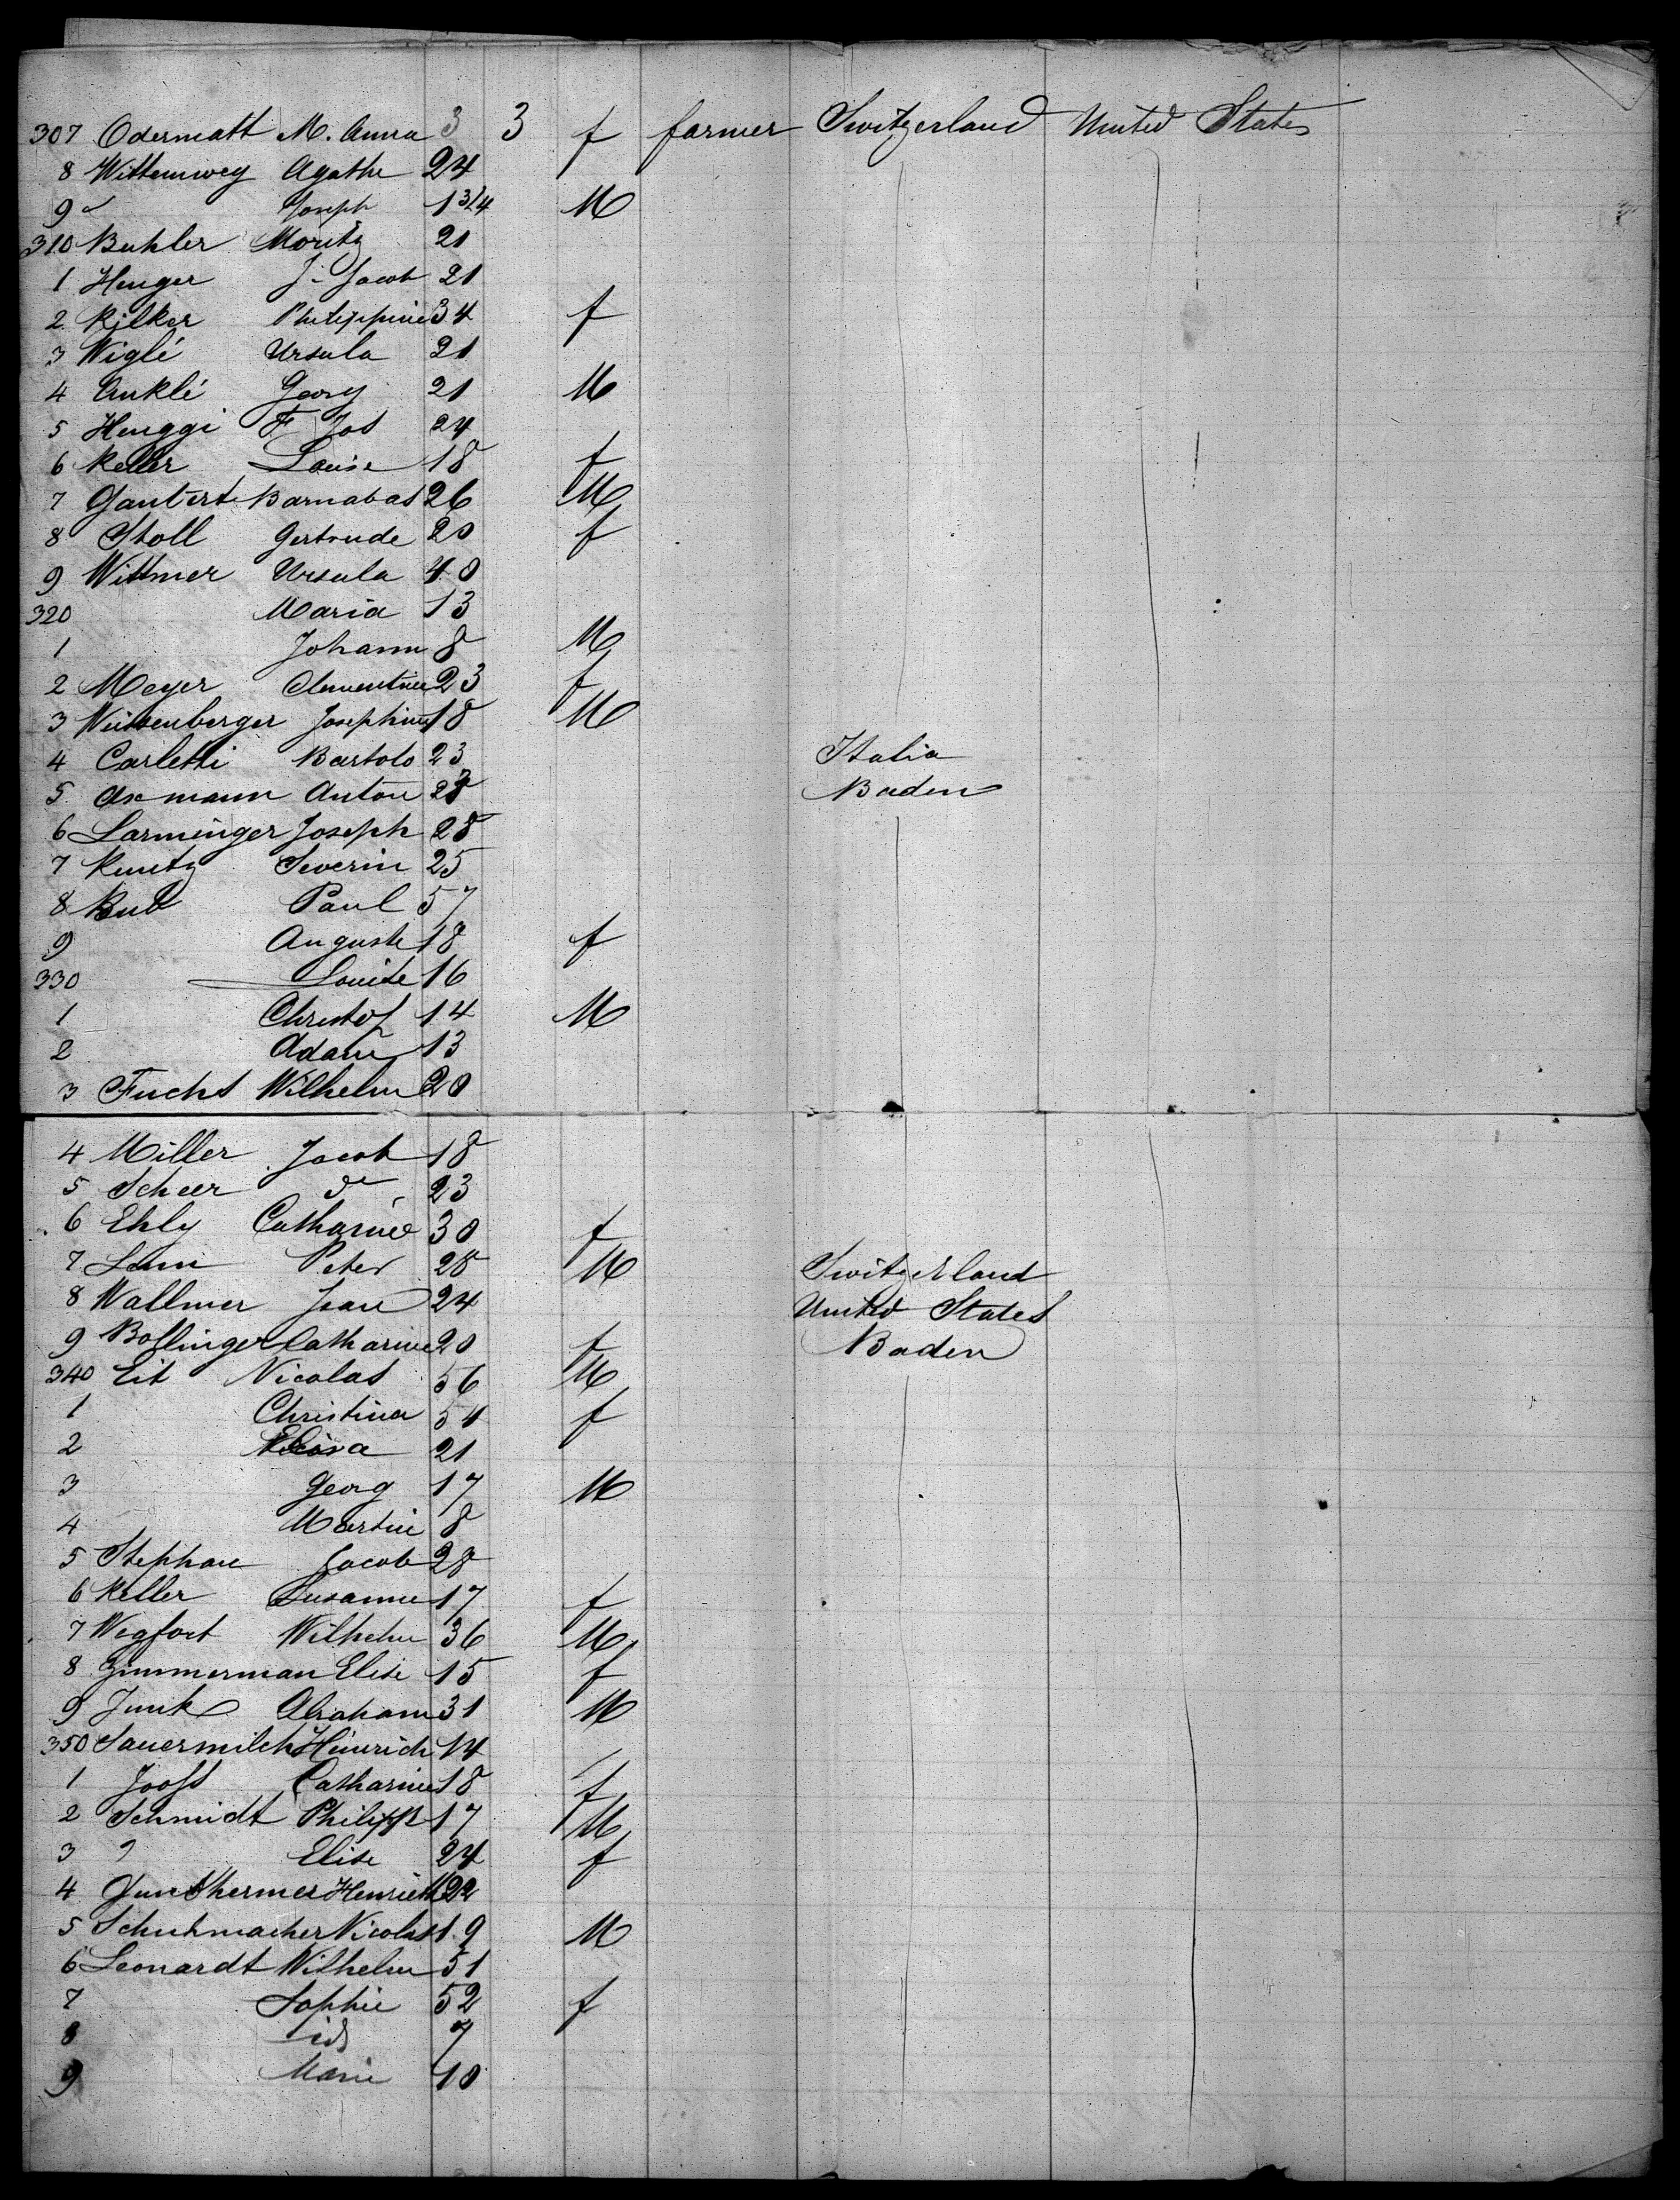 307 Odermatt M. Anna 3 3 f farmer Switzerland United States
8 Wittemweg Agathe 24
9 " Joseph 1 3/4 M
310 Buhler Moritz 21
1 Henger J. Jacob 21
2 Rilker Philippine 34 f
3 Wiglé Ursula 21
4 Anklé Georg 21 M
5 Henggi F Jos 24
6 Keller Louise 18 f
7 Gaubert Barnabas 26 M
8 Stoll Gertrude 20 f
9 Wittmer Ursula 40
320 Maria 13
1 Johann 8 M
2 Meyer Clementine 23 f
3 Josephine 18 M
4 Carletti Bartolo 23 Italia
5 Axmann Anton Baden
6 Larminger Joseph 28
7 Kuntz Severin 25
8 Bub Paul 57
9 Auguste 18 f
330 Louise 16
1 Christof 14 M
2 Adam 13
3 Fuchs Wilhelm 20
4 Miller Jacob 18
5 Scheer do 23
6 Ehly Catharine 30 f
7 Peter 28 M Switzerland
8 Wallmer Jean 24 United States
9 Bollinger Catharine 20 f Baden
340 Eit Nicolas 56 M
1 Christina 54 f
2 21
3 Georg 17 M
4 Martin 8
5 Stephan Jacob 28
6 Keller Susanne 17 f
7 Wegfort Wilhelm 36 M
8 Zimmerman Elise 15 f
9 Junk Abraham 31 M
350 Sauermilch Heinrich 14
1 Jooss Catharine 18 f
2 Schmidt Philipp 17 M
3 " Elise 24 f
4 Henriette 22
5 Schuhmacher Nicolas 19 M
6 Leonardt Wilhelm 51
7 Sophie 52 f
8 7
9 Marie 10